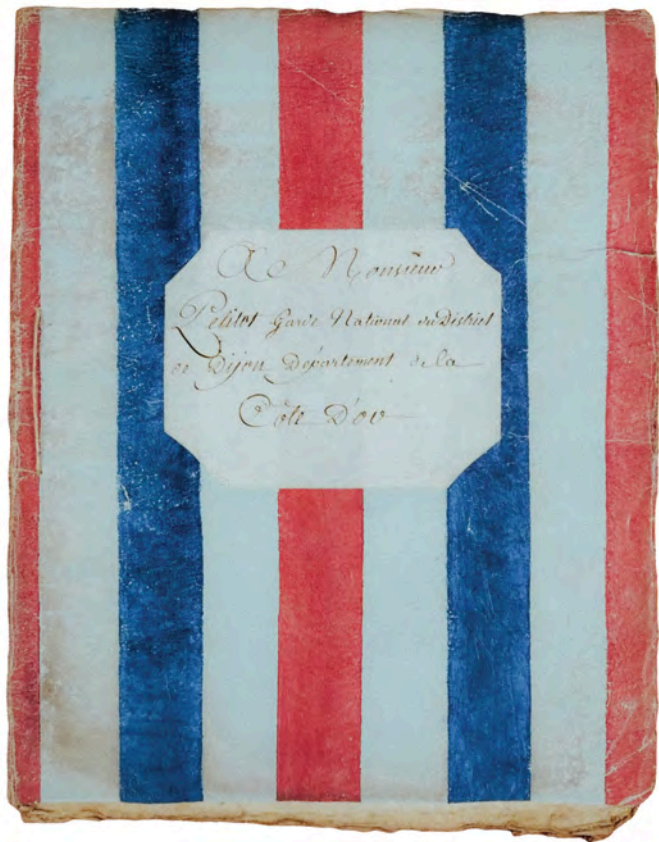 A Monsieur
Petitot Garde National du District
de Dijon Département de la
Côte D'or